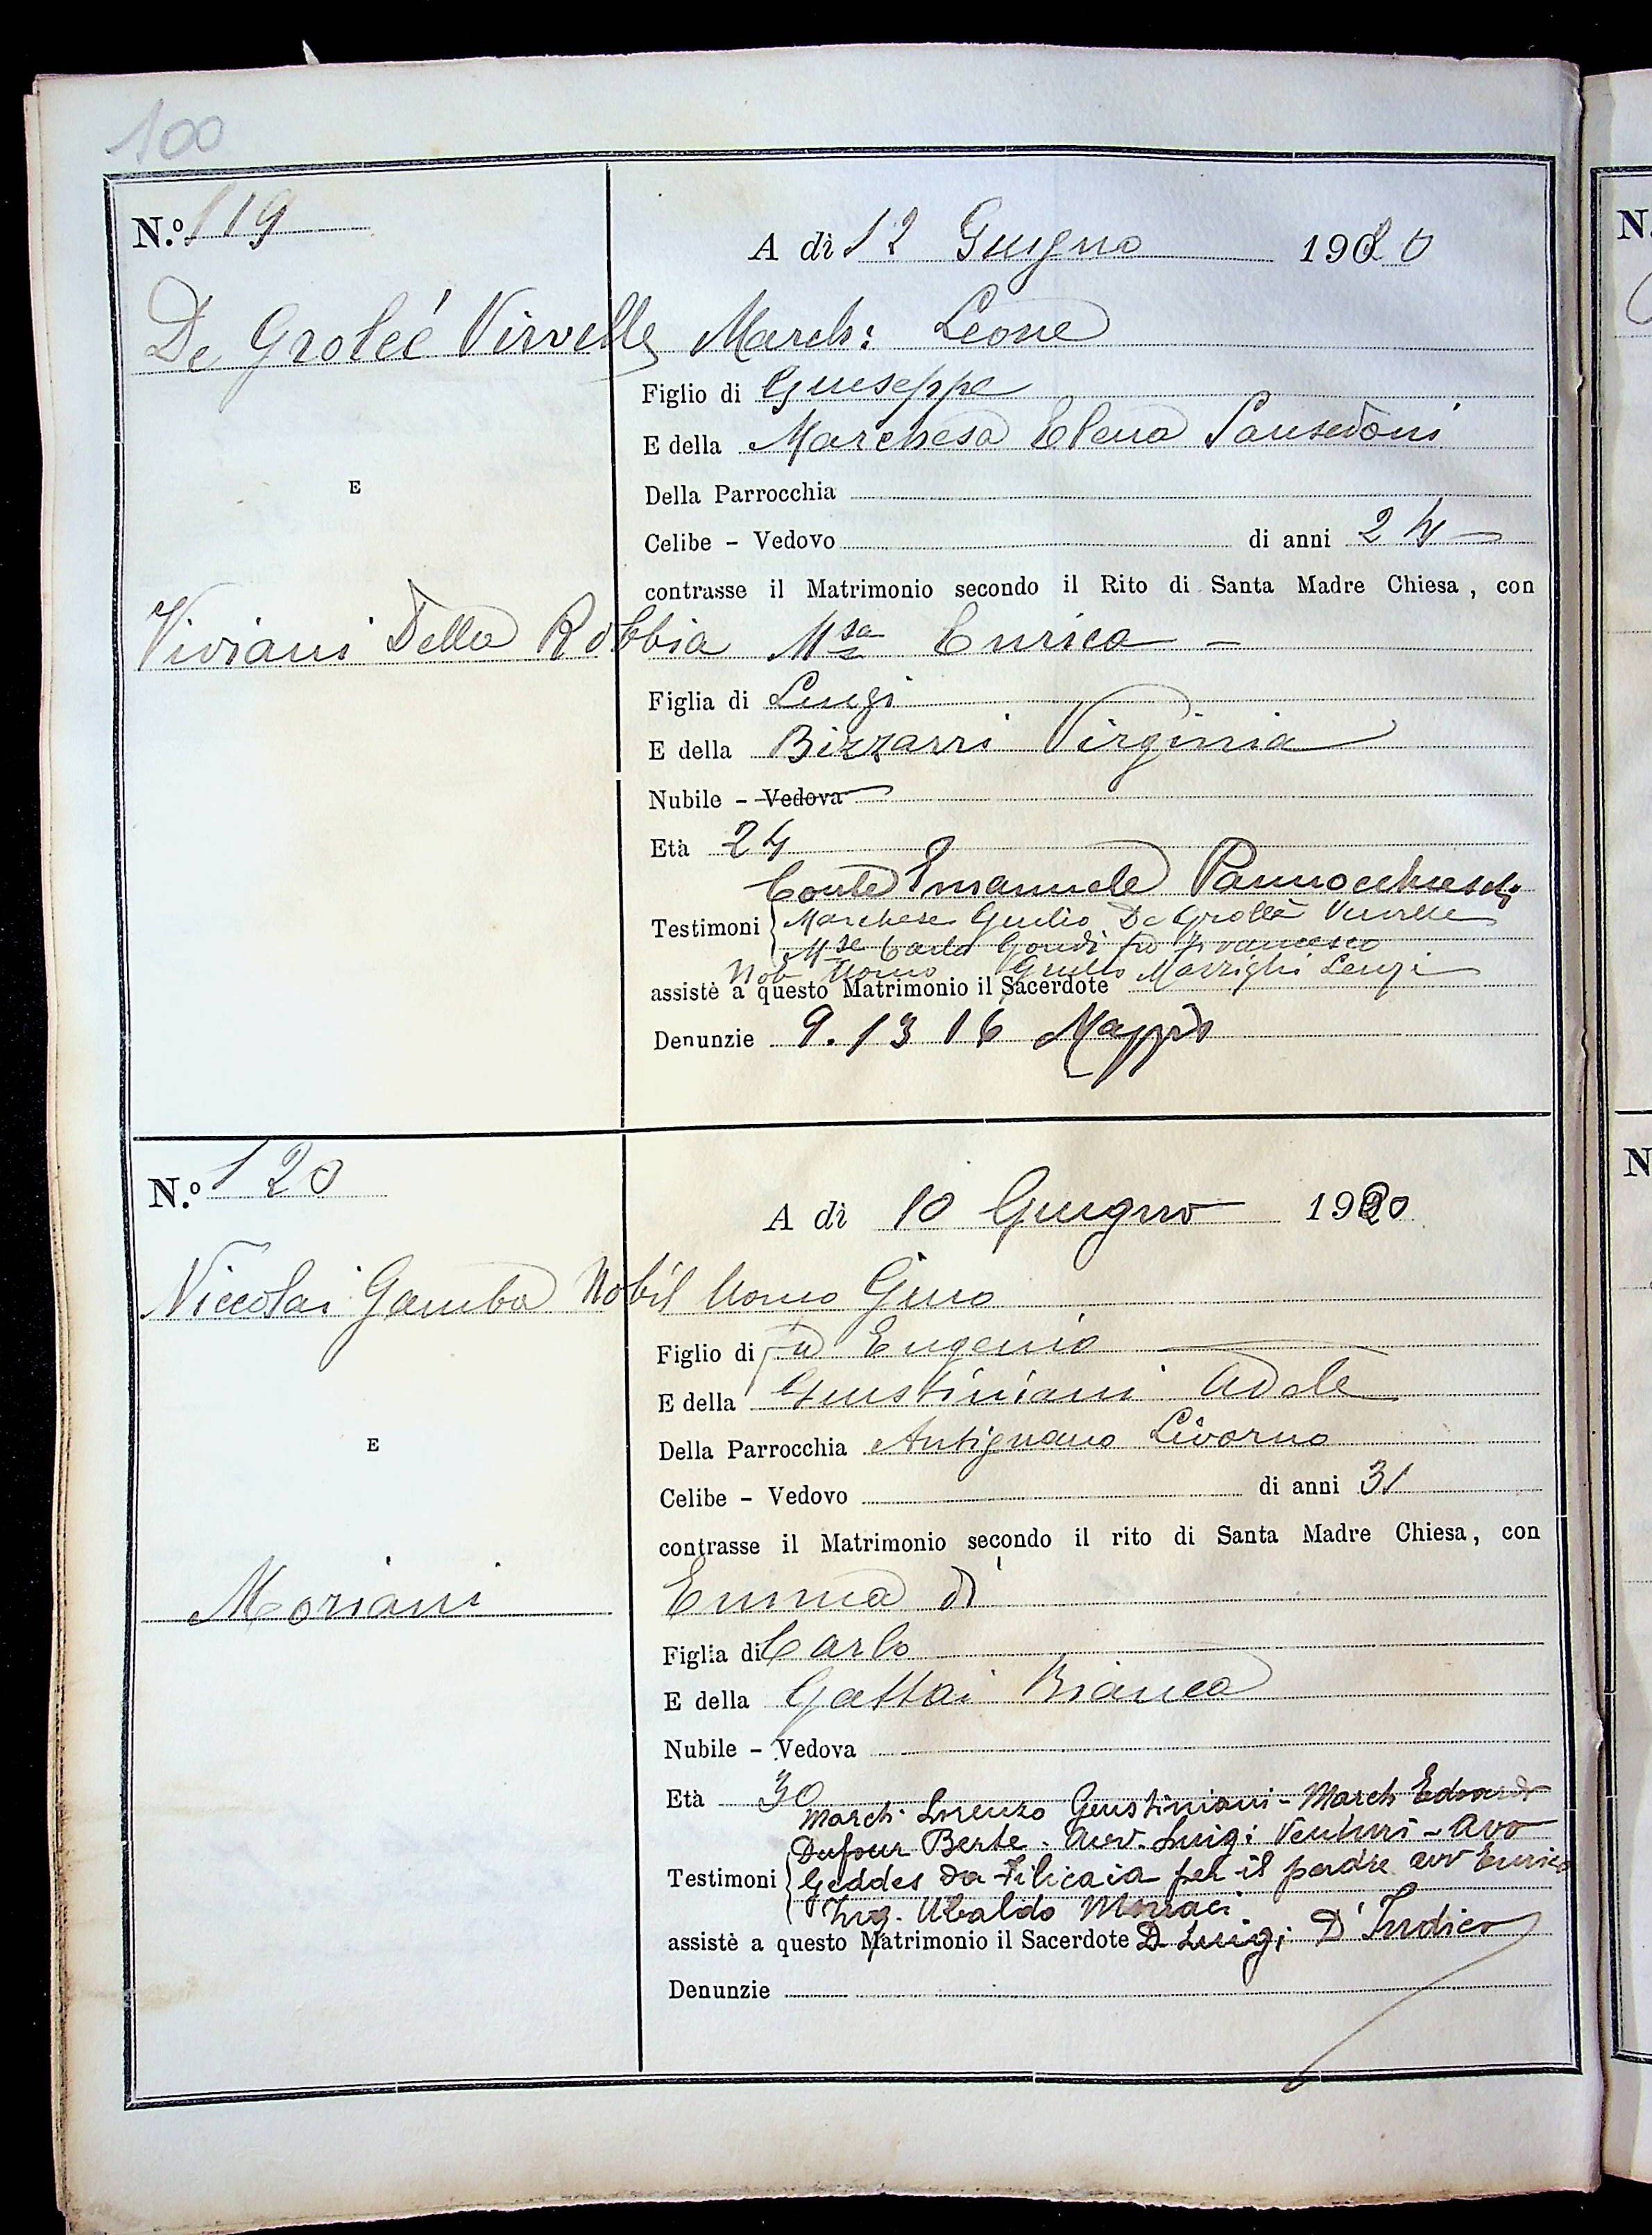 100
N.º 119
A dì 12 Giugno 1920
De Groleé Virvelle March: Leone
Figlio di Giuseppe
E della Marchesa Elena Sansedoni
E
Della Parrocchia
Celibe - Vedovo di anni 24
contrasse il Matrimonio secondo il Rito di Santa Madre Chiesa, con
Viviani Della Robbia M.sa Enrica
Figlia di Luigi
E della Bizzarri Virginia
Nubile - Vedova
Età 24
Conte Emanuele Pannocchieschi
Testimoni Marchese Giulio De Grolleè Virvelle
Mse Carlo Gondi fu Francesco
Nob Uomo Giulio Marzighi Lenzi
assistè a questo Matrimonio il Sacerdote
Denunzie 9. 13 16 Maggio
N.º 120
A dì 10 Giugno 1920
Niccolai Gamba Nobil Uomo Gino
Figlio di fu Eugenio
E della Giustiniani Adele
E
Della Parrocchia Antignano Livorno
Celibe - Vedovo di anni 31
contrasse il Matrimonio secondo il rito di Santa Madre Chiesa, con
Moriani Emma di
Figlia di Carlo
E della Gattai Bianca
Nubile - Vedova
Età 30
March. Lorenzo Giustiniani - March Edoardo
Dufour Berte. Avv. Luigi Venturi - Avo
Testimoni Geddes da Filicaia per il padre avv Enrico
Ing. Ubaldo
assistè a questo Matrimonio il Sacerdote D. Luigi D'Indico
Denunzie
N.
N